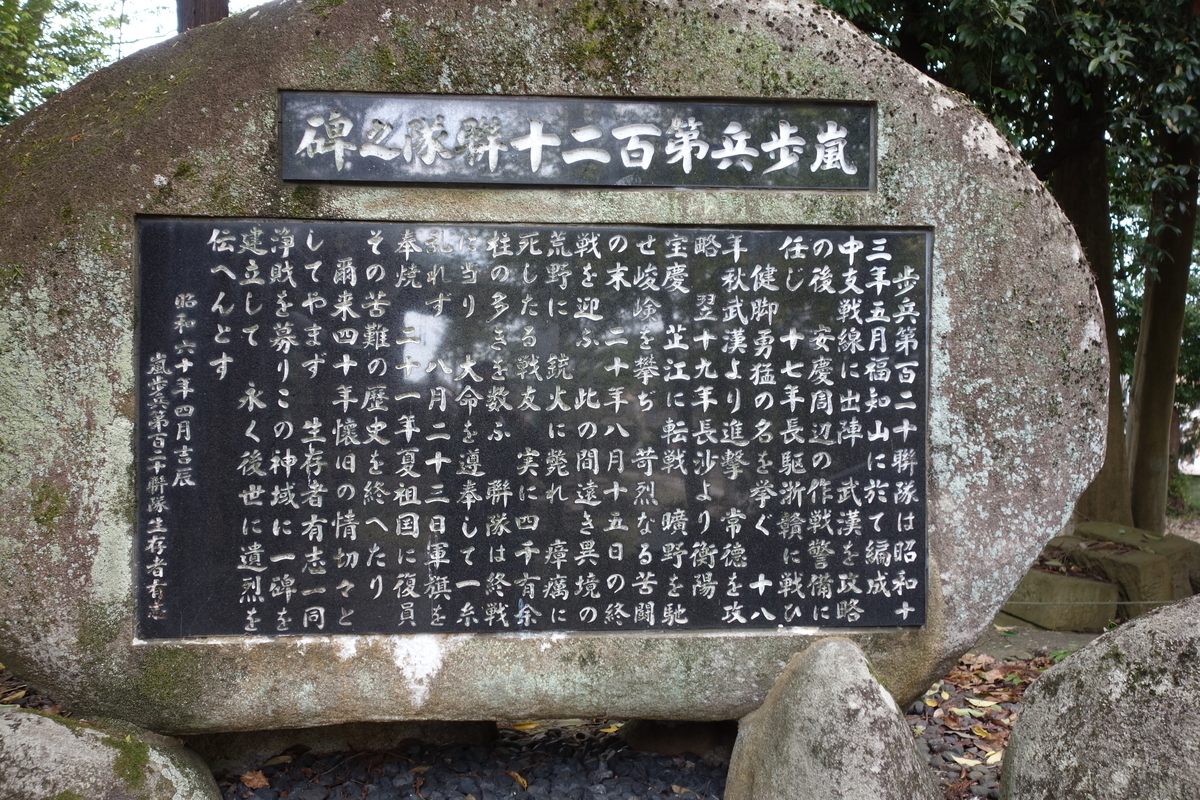 嵐歩兵第百二十聯隊之碑
歩兵第百二十聯隊は昭和十
三年五月福知山に於て編成
中支戦線に出陣 武漢を攻略
の後 安慶周辺の作戦警備に
任じ 十七年長駆浙贛に戦ひ
健脚勇猛の名を挙ぐ 十八
年秋武漢より進撃 常徳を攻
略 翌十九年長沙より衡陽
宝慶 芷江に転戦 曠野を馳
せ峻嶮を攀ぢ 苛烈なる苦闘
の末 二十年八月十五日の終
戦を迎ふ 此の間遠き異境の
荒野に 銃火に斃れ 瘴癘に
死したる戦友 実に四千有余
柱の多きを数ふ 聯隊は終戦
に当り 大命を遵奉して一糸
乱れず 八月二十三日軍旗を
奉焼 二十一年夏祖国に復員
その苦難の歴史を終へたり
爾来四十年懐旧の情切々と
してやまず 生存者有志一同
浄財を募りこの神域に一碑を
建立して 永く後世に遺烈を
伝へんとす
昭和六十年四月吉辰
嵐歩兵第百二十聯隊生存者有志